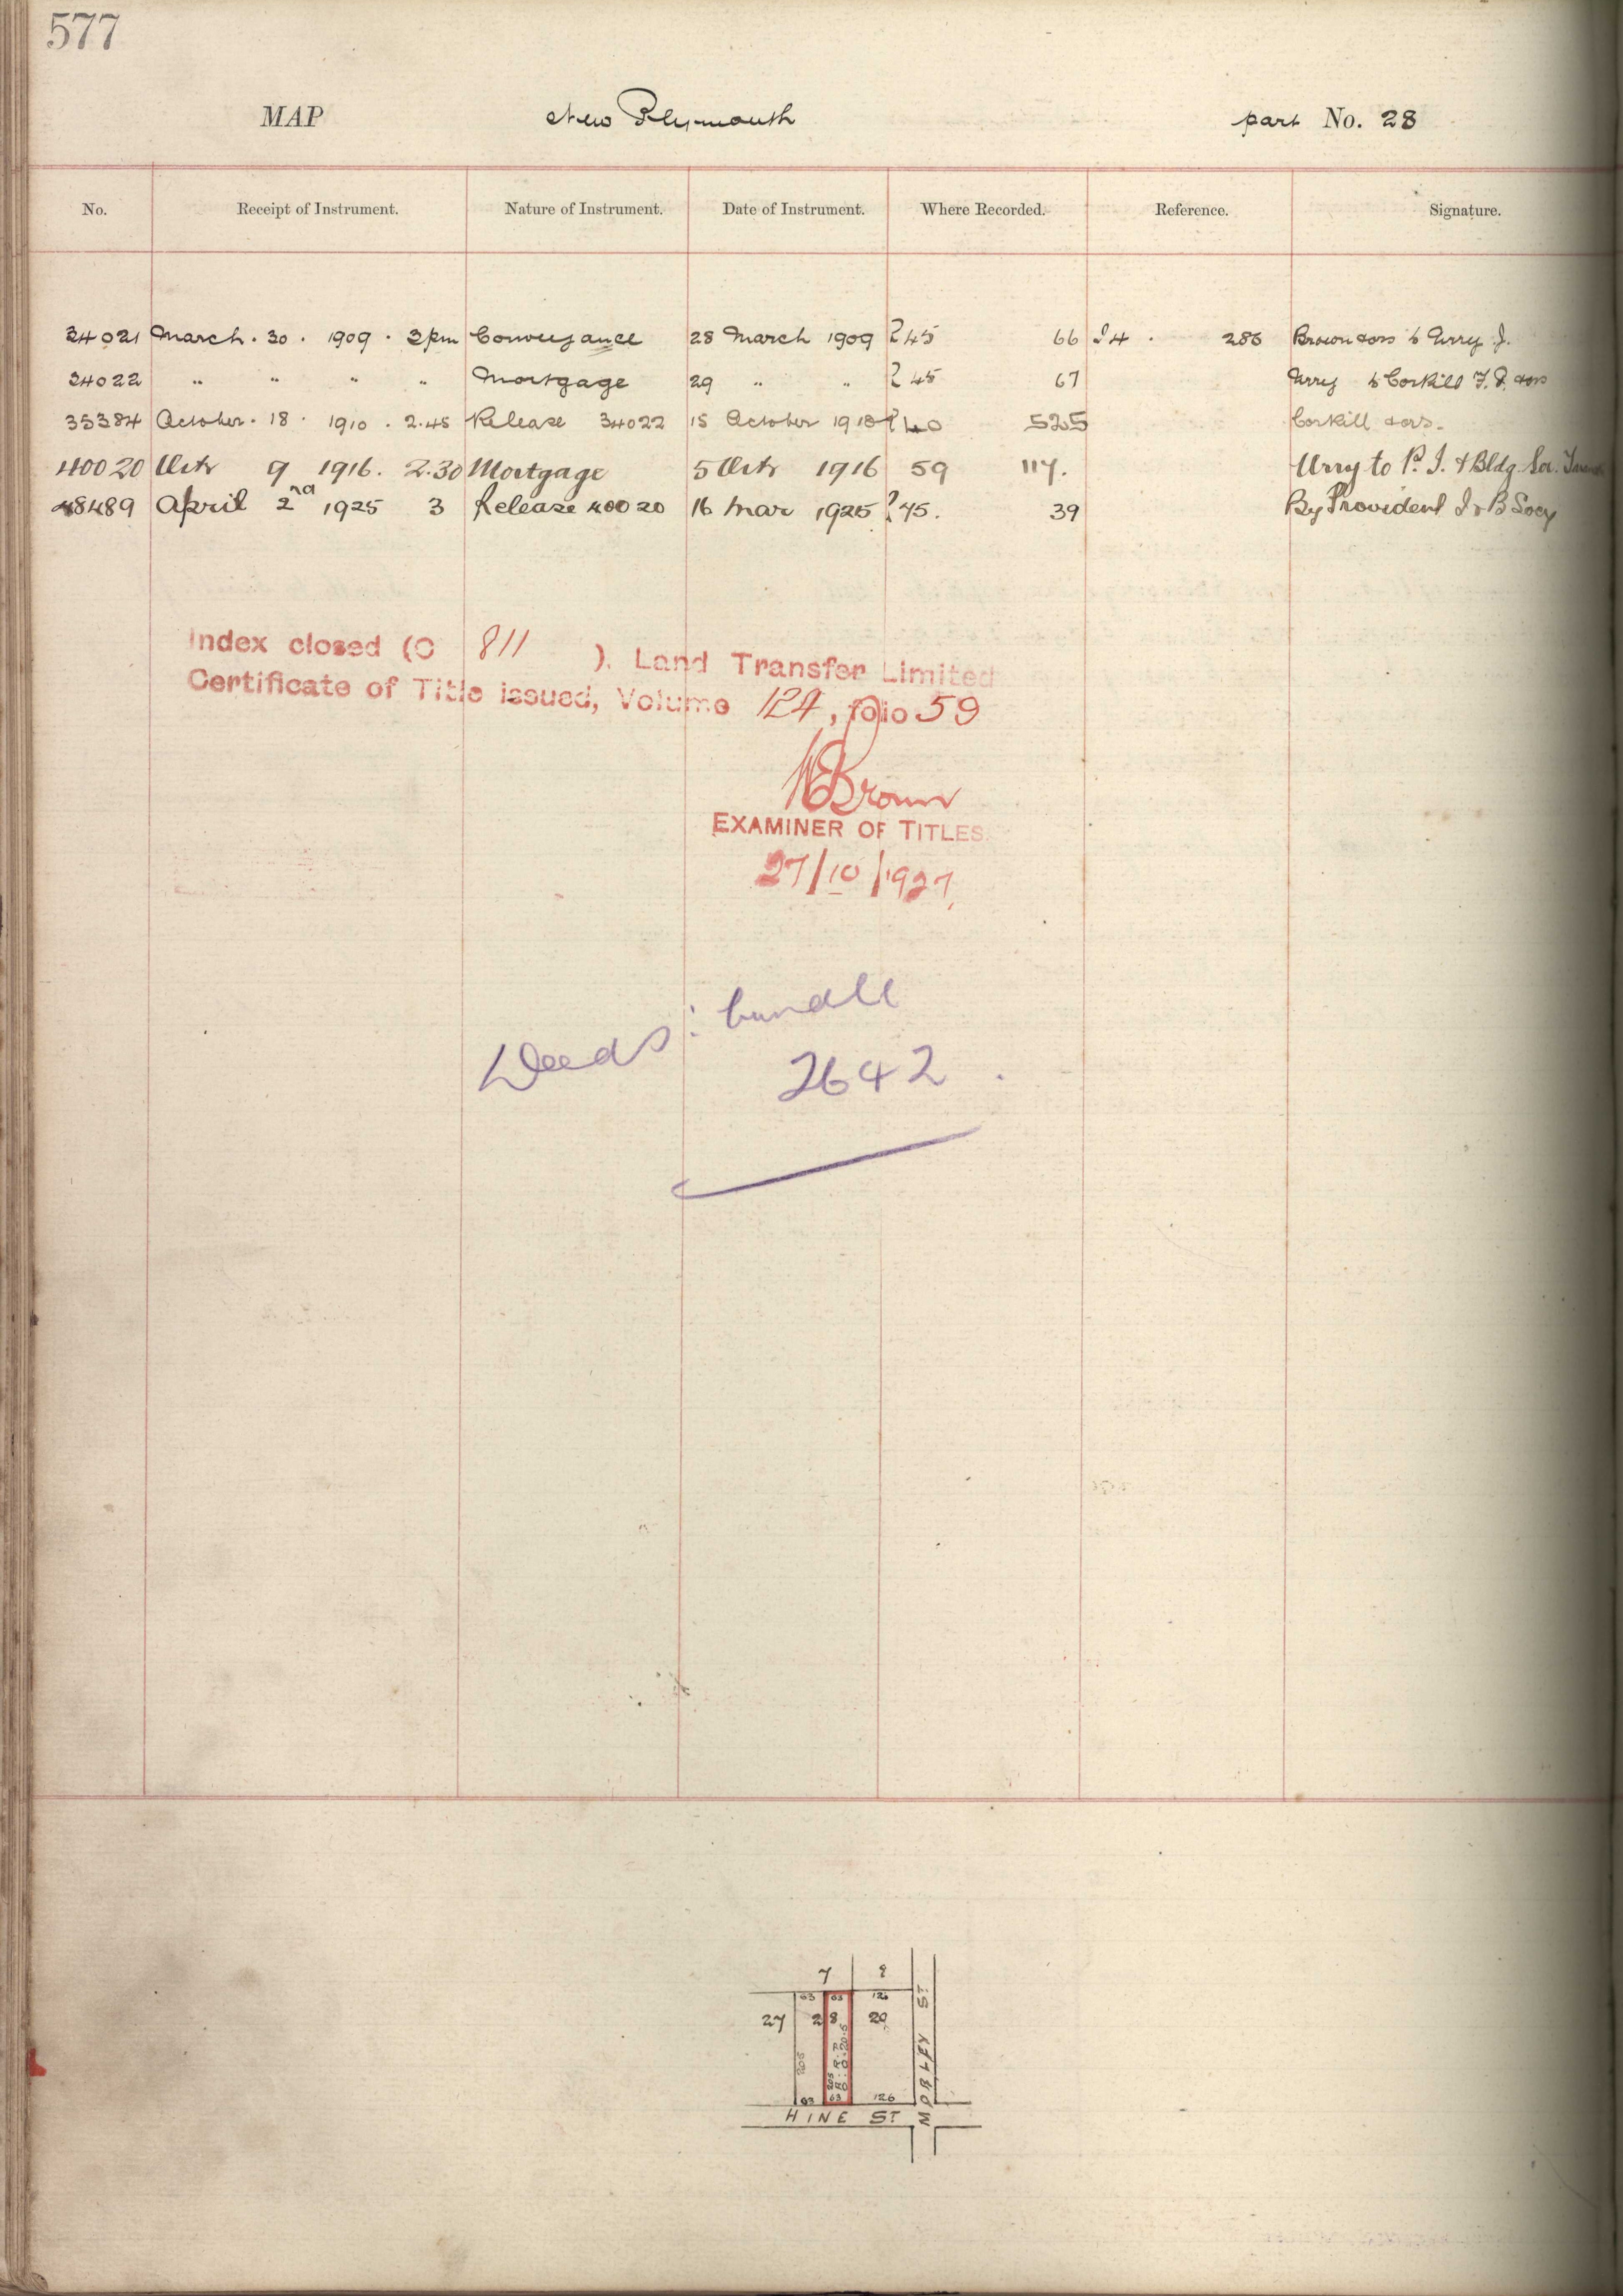 577
MAP New Plymouth part No. 28
No. Receipt of Instrument. Nature of Instrument. Date of Instrument. Where Recorded. Reference. Signature.
34021 March . 30 . 1909 . 3pm Conveyance 28 March 1909 45 66 I4 . 286 Brown &ors to Urry J.
34022 " " " " Mortgage 29 " " 45 67 Urry to Corkill F. P. &ors
35384 October . 18 . 1910 . 2.45 Release 34022 15 October 1910 40 525 Corkill &ors.
40020 Octr 9 1916. 2.30 Mortgage 5 Octr 1916 59 117. Urry to P. I. & Bldg Soc.
48489 April 2nd 1925 3 Release 40020 16 Mar 1925 45. 39 By Provident I & B Socy
Index closed (C 811 ). Land Transfer Limited
Certificate of Title issued, Volume 124, folio 59
Brown
EXAMINER OF TITLES.
27/10/1927
Deeds: bundle
2642.
7 8
63 63 126
27 28 29
MORLEY ST
205
205
63 63 126
HINE ST